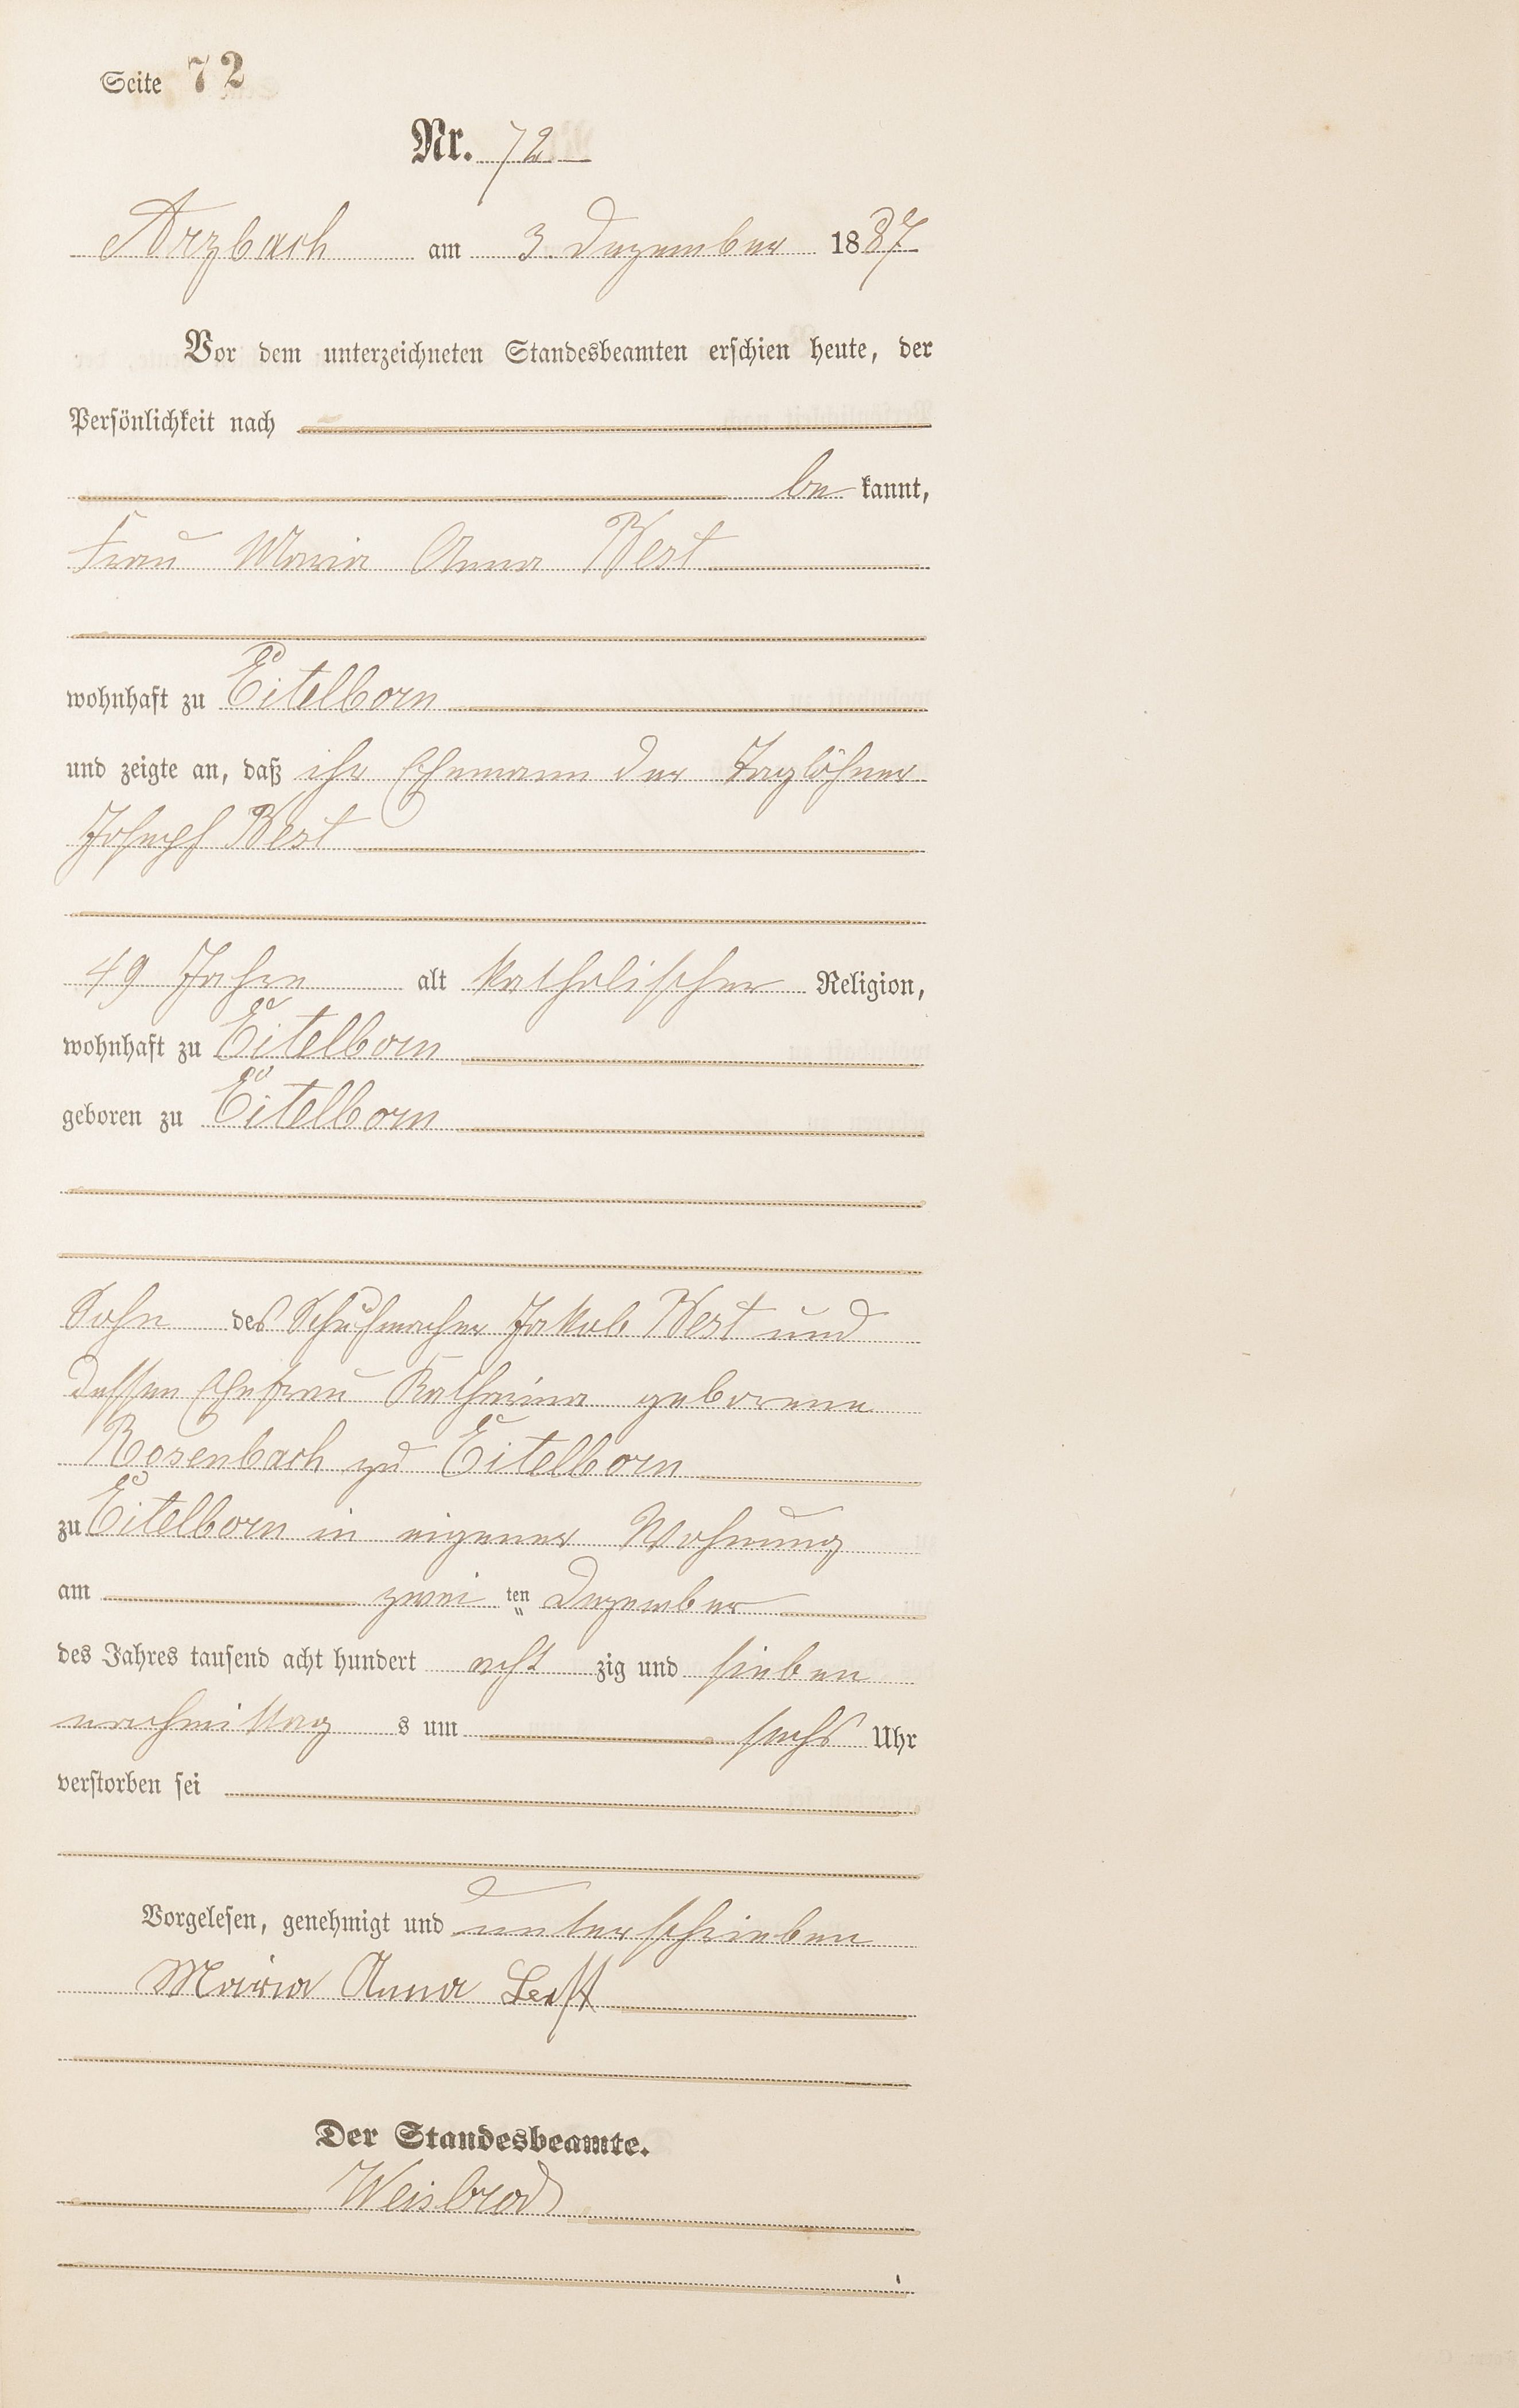 Seite 72
Nr. 72
Arzbach am 3. Dezember 1887
Vor dem unterzeichneten Standesbeamten erschien heute, der
Persönlichkeit nach
be kannt,
Frau Maria Anna Best
wohnhaft zu Eitelborn
und zeigte an, daß ihr Ehemann der Taglöhner
Joseph Best
49 Jahre alt katholischer Religion,
wohnhaft zu Eitelborn
geboren zu Eitelborn
Sohn des Schuhmacher Jakob Best und
dessen Ehefrau Katharina geborene
Rosenbach zu Eitelborn
zu Eitelborn in eigener Wohnung
am zwei ten Dezember
des Jahres tausend acht hundert acht zig und sieben
nachmittag s um sechs Uhr
verstorben sei
Vorgelesen, genehmigt und unterschrieben
Maria Anna Best
Der Standesbeamte.
Weisbrod